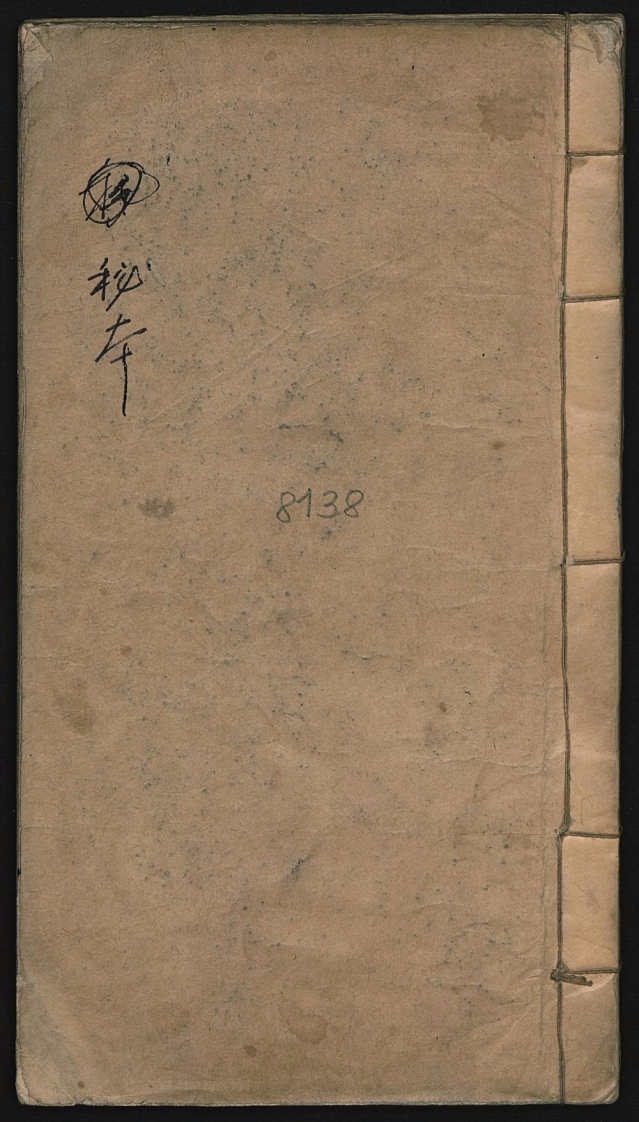 秘本
8138